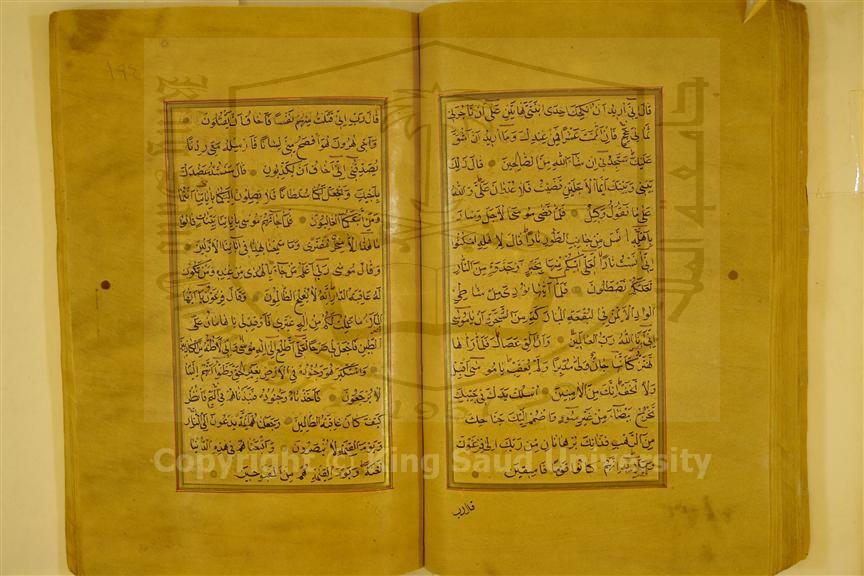 قال اني اريد ان انكحك احدى ابنتي هاتين على ان تأجرني
ثماني حجج فان اتممت عشرا فمن عندك وما اريد ان اشق
عليك ستجدني ان شاء الله من الصالحين قال ذلك
بيني وبينك ايما الاجلين قضيت فلا عدوان علي والله
على ما نقول وكيل فلما قضى موسى الاجل وسار
باهله آنس من جانب الطور نارا قال لاهله امكثوا
اني آنست نارا لعلي آتيكم منها بخبر او جذوة من النار
لعلكم تصطلون فلما آتيها نودي من شاطئ
الواد الايمن في البقعة المباركة من الشجرة ان يا موسى
اني انا الله رب العالمين وان الق عصاك فلما رآها
تهتز كانها جان ولى مدبرا ولم يعقب يا موسى اقبل
ولا تخف انك من الآمنين اسلك يدك في جيبك
تخرج بيضاء من غير سوء واضمم اليك جناحك
من الرهب فذانك برهانان من ربك الى فرعون
وملائه انهم كانوا قوما فاسقين
قال رب
قال رب اني قتلت منهم نفسا فاخاف ان يقتلون
واخي هرون هو افصح مني لسانا فارسله معي ردءا
يصدقني اني اخاف ان يكذبون قال سنشد عضدك
باخيك ونجعل لكما سلطانا فلا يصلون اليكما بآياتنا انتما
ومن اتبعكما الغالبون فلما جاءهم موسى بآياتنا بينات قالوا
ما هذا الا سحر مفترى وما سمعنا بهذا في آبائنا الاولين
وقال موسى ربي اعلم بمن جاء بالهدى من عنده ومن تكون
له عاقبة الدار انه لا يفلح الظالمون وقال فرعون يا ايها
الملأ ما علمت لكم من اله غيري فاوقد لي يا هامان على
الطين فاجعل لي صرحا لعلي اطلع الى اله موسى واني لاظنه من الكاذبين
واستكبر هو وجنوده في الارض بغير الحق وظنوا انهم الينا
لا يرجعون فاخذناه وجنوده فنبذناهم في اليم فانظر
كيف كان عاقبة الظالمين وجعلناهم ائمة يدعون الى النار
ويوم القيمة لا ينصرون واتبعناهم في هذه الدنيا
لعنة ويوم القيمة هم من المقبوحين
جامعة الملك سعود
1957
Copyright © King Saud University